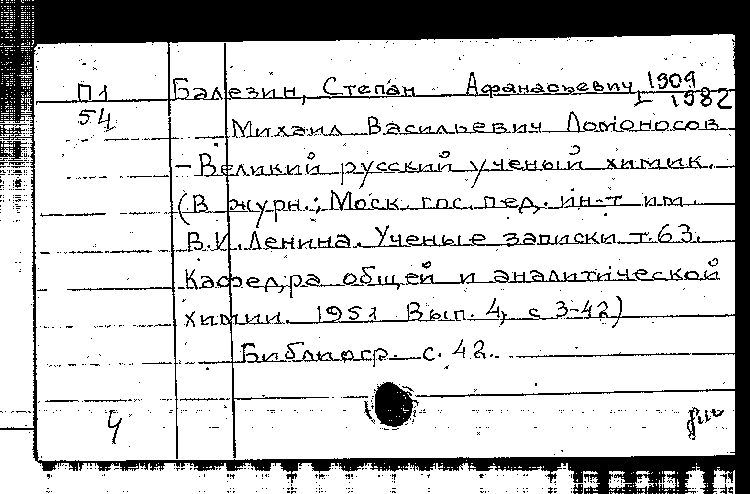 П1 Балезин, Степан Афанасьевич, 1909
54 - 1982
Михаил Васильевич Ломоносов
- Великий русский ученый химик.
(В журн.: Моск. гос. пед. ин-т им.
В.И. Ленина. Ученые записки т. 63.
Кафедра общей и аналитической
химии. 1951 Вып. 4, с 3-42)
Библиогр. с. 42.
4